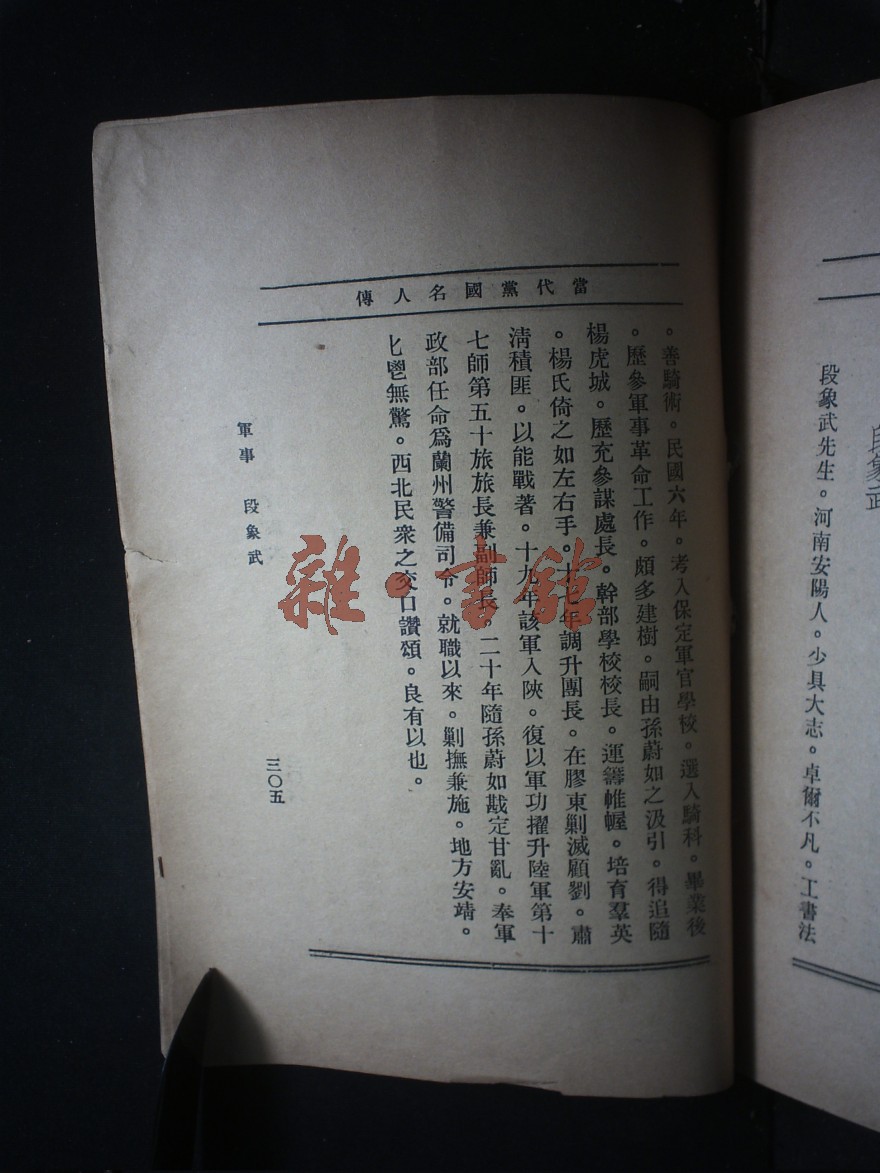 段象武
段象武先生。河南安陽人。少具大志。卓爾不凡。工書法
當代黨國名人傳
。善騎術。民國六年。考入保定軍官學校。選入騎科。畢業後
。歷參軍事革命工作。頗多建樹。嗣由孫蔚如之汲引。得追隨
楊虎城。歷充參謀處長。幹部學校校長。運籌帷幄。培育羣英
。楊氏倚之如左右手。十七年調升團長。在膠東剿滅顧劉。肅
清積匪。以能戰著。十九年該軍入陝。復以軍功擢升陸軍第十
七師第五十旅旅長兼副師長。二十年隨孫蔚如戡定甘亂。奉軍
政部任命爲蘭州警備司令。就職以來。剿撫兼施。地方安靖。
匕鬯無驚。西北民衆之交口讚頌。良有以也。
軍事 段象武
三〇五
雜·書館